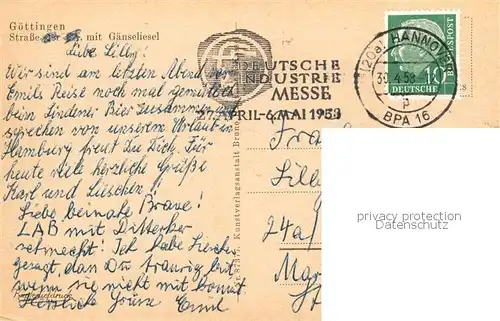 Göttingen
Straße mit Gänseliesel
Liebe Lilly!
Wir sind am letzten Abend der
Emils Reise noch mal gemütlich
beim Lindener Bier zusammen und
sprechen von unserem Urlaub in
Hamburg freut Du Dich. Für
heute viele herzliche Grüße
Karl und Lieschen!
Liebe beinahe Braue!
LAB mit
schmeckt! Ich habe Lieschen
gesagt, dass Du traurig bist
wenn sie nicht mit kommt
Herzliche Grüße Emil
Kunstverlagsanstalt
DEUTSCHE
INDUSTRIE
MESSE
27. APRIL-6. MAI 1958
(20a) HANNOVER
30.4.58
p
BPA 16
10
DEUTSCHE
BUNDESPOST
Frau
24a
privacy protection
Datenschutz